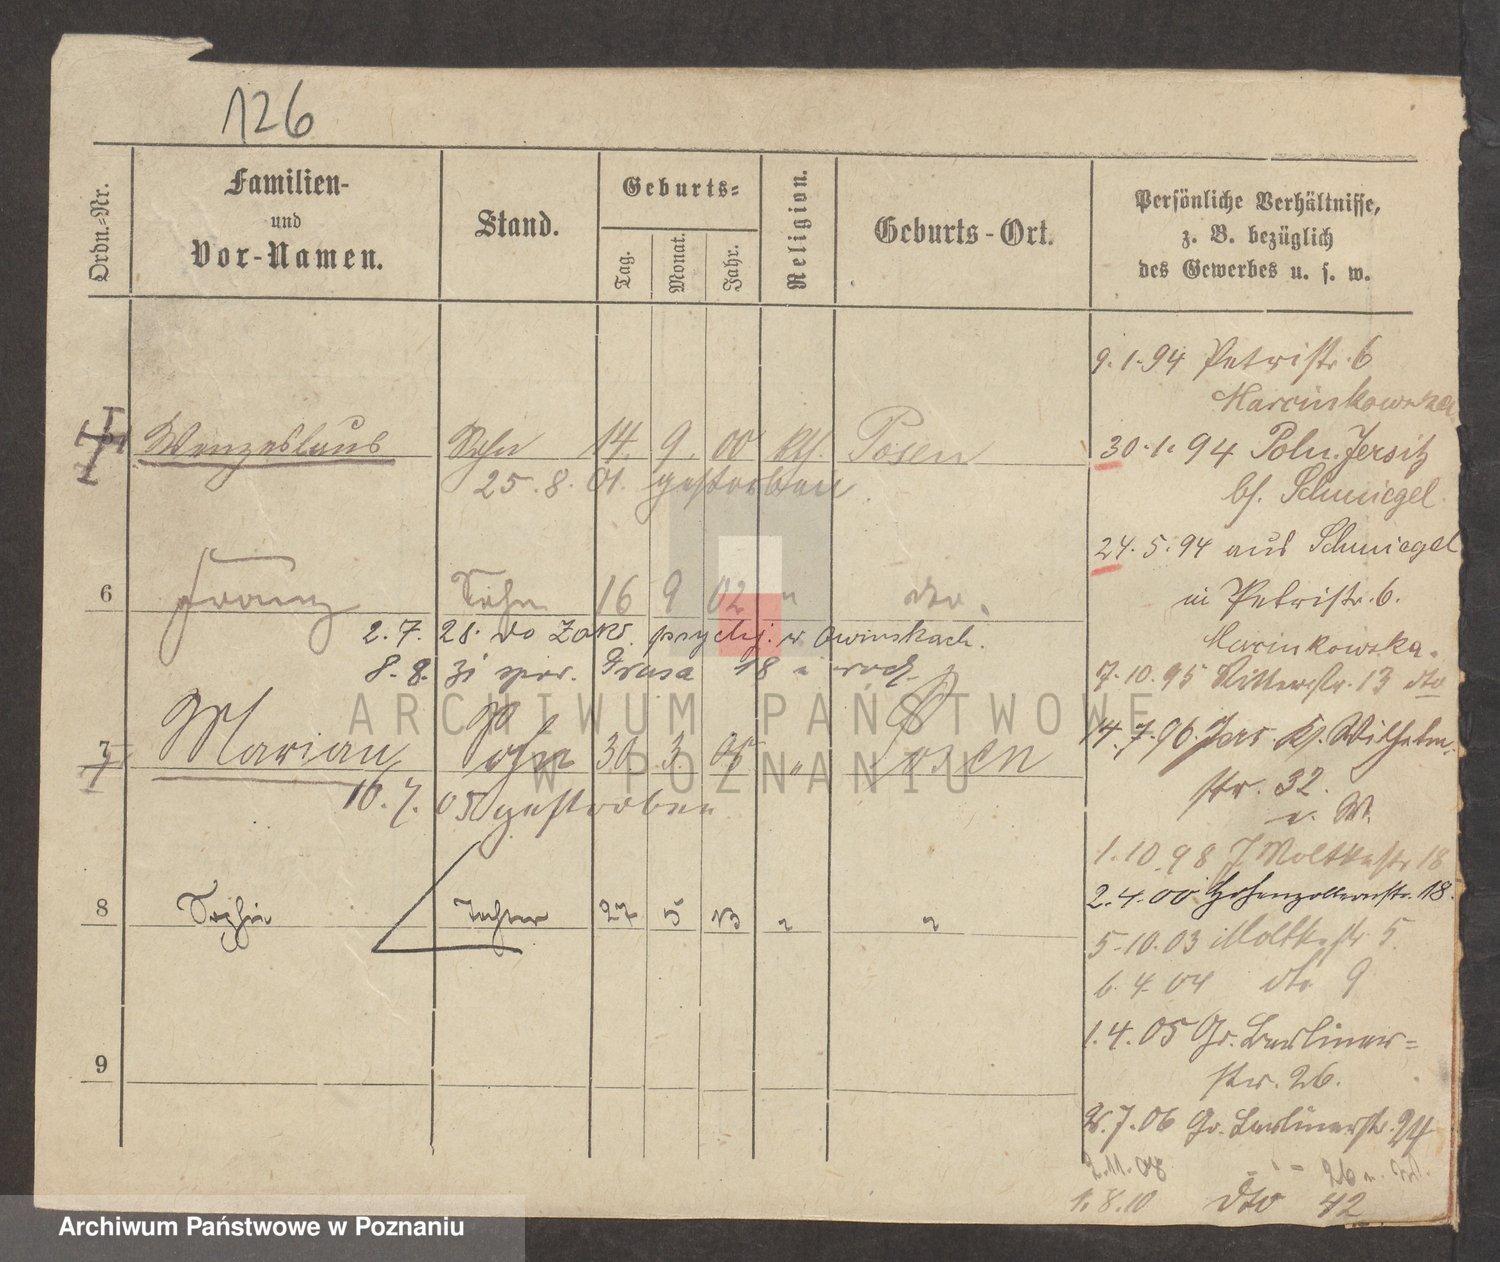 126
Ordn.-Nr.
Familien-
und
Vor-Namen.
Stand.
Geburts-
Tag.
Monat.
Jahr.
Religion.
Geburts-Ort.
Persönliche Verhältnisse,
z. B. bezüglich
des Gewerbes u. s. w.
9.1.94 Petristr. 6
Marcinkowska
Wenzeslaus Sohn 14. 9. 00 kth. Posen
25.8.01. gestorben
30.1.94 Poln. Jersitz
bf. Schmiegel.
24.5.94 aus Schmiegel
in Petristr. 6.
Marcinkowska.
6 Franz Sohn 16 9 02 " dto.
2.7.28. do Zakł. psychj. w Owinskach.
8.8. zi 18
7.10.95 Ritterstr. 13 dto
7 Marian Sohn 30 3. 05 " Posen
10.7.05 gestorben
14.7.96. Jers. Kf. Wilhelm-
str. 32.
1.10.98 J Moltkestr 18
2.4.00 Hohenzollernstr. 18.
8 Sophie Tochter 27 5 13 " "
5.10.03 Moltkestr 5.
6.4.04 dto 9
1.4.05 Gr. Berliner-
str. 26.
9
7.06 Gr. Berlinerstr. 24
2.11.08 - " - 26
1.8.10 dto 42
ARCHIWUM PAŃSTWOWE
W POZNANIU
Archiwum Państwowe w Poznaniu